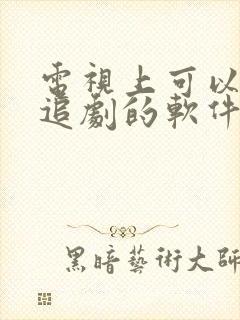 電視上可以
追劇的軟件
黑暗藝術大師